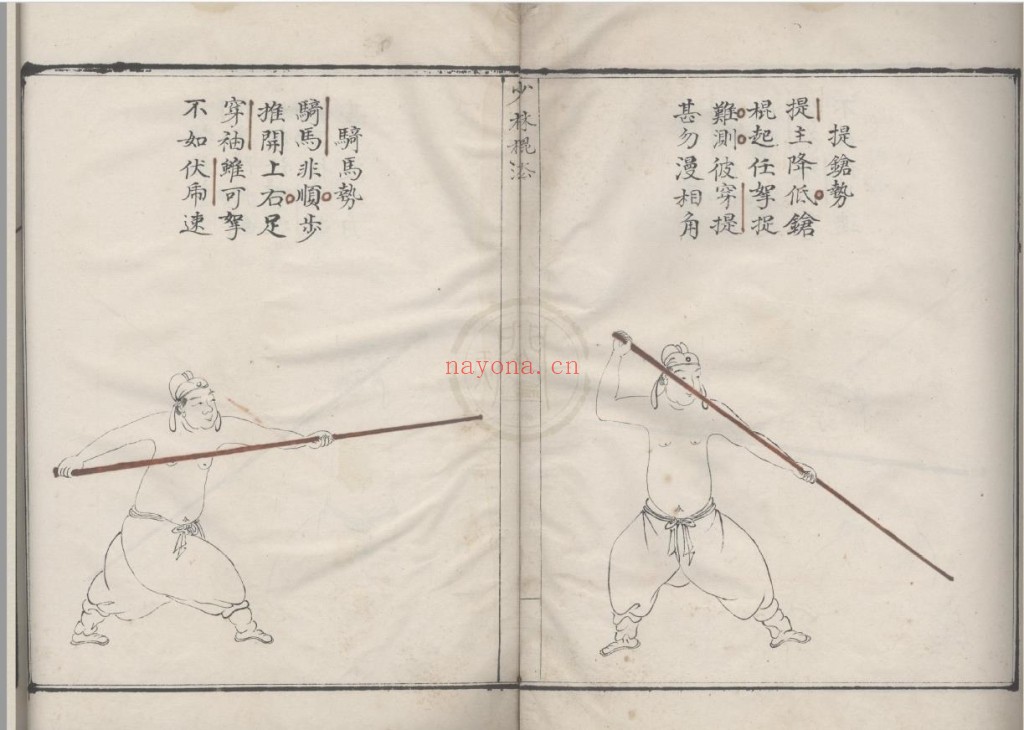 提鎗勢
提主降低鎗
棍起任拏捉
難測彼穿提
甚勿漫相角
少林棍法
騎馬勢
騎馬非順步
推開上右足
穿袖雖可拏
不如伏虎速
nayona.cn